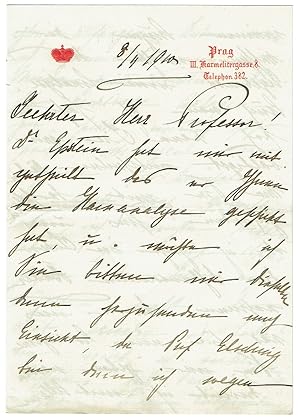 Prag
III. Karmelitergasse 8.
Telephon 382.
8/4 1910
Geehrter Herr Professor!
Dr Epstein hat mir mit
getheilt das er Ihnen
die Harnanalyse geschickt
hat, u. möchte ich
Sie bitten mir dieselbe
dann zusenden
Einsicht, da Prof Elschnig
bei dem ich wegen